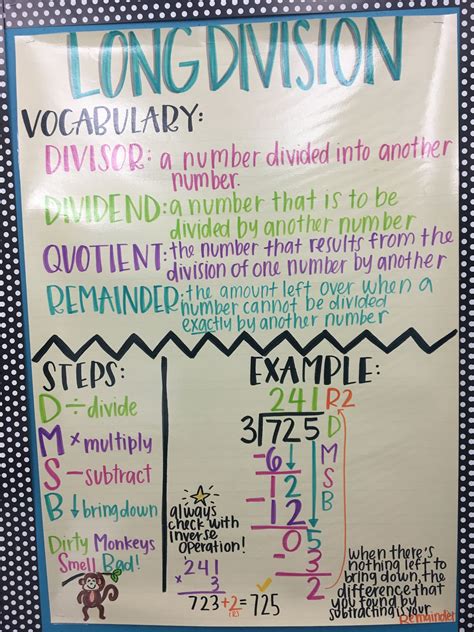 LONG DIVISION
VOCABULARY:
DIVISOR: a number divided into another
number.
DIVIDEND: a number that is to be
divided by another number
QUOTIENT: the number that results from the
division of one number by another
REMAINDER: the amount left over when a
number cannot be divided
exactly by another number
STEPS:
D ÷ divide
M × multiply
S − subtract
B ↓ bring down
Dirty Monkeys
Smell Bad!
EXAMPLE:
241 R2
3 725
-6
12
-12
05
-3
2
D
M
S
B
always
check with
inverse
operation!
241
× 3
723 +2 = 725
when there's
nothing left to
bring down, the
difference that
you found by
subtracting is your
Remainder